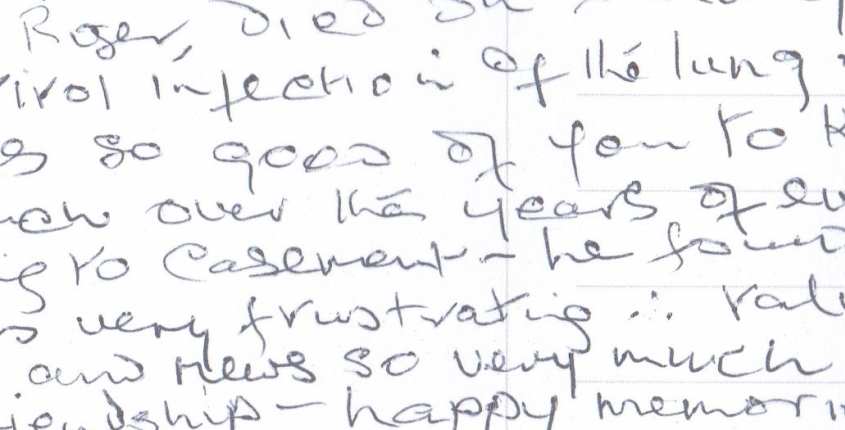 Roger, Died on
viral infection of the lung
so good of you to
over the years of
to Casement - he found
very frustrating ∴ valu
and news so very much
iendship - happy memori